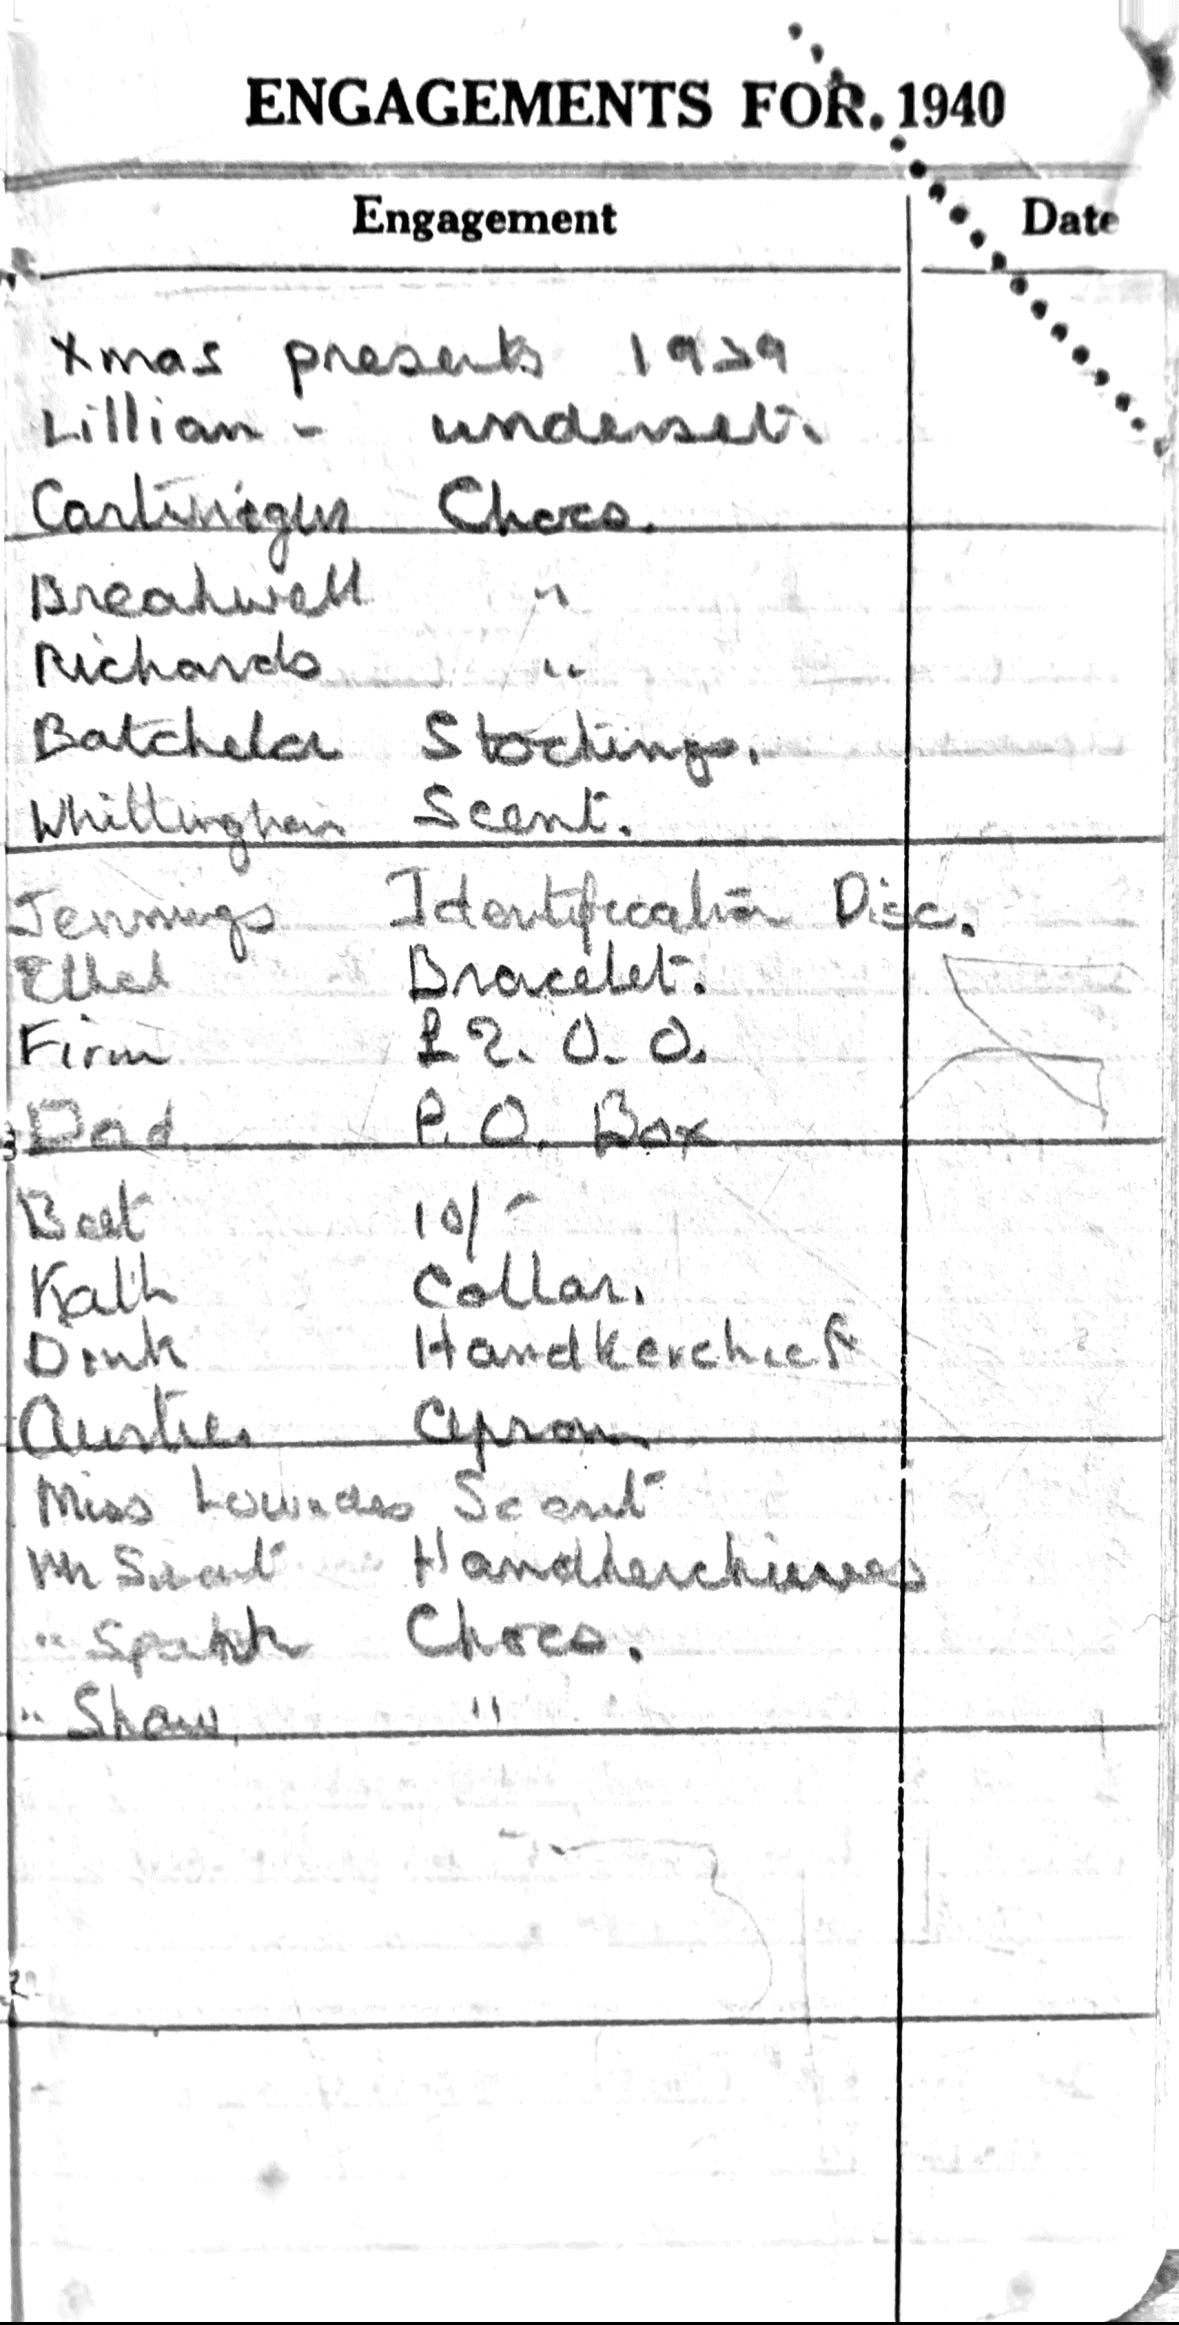 ENGAGEMENTS FOR. 1940
Engagement Date
Xmas presents 1939
Lillian - underset.
Chocs.
Breakwell "
Richards "
Batchelor Stockings.
Whittingham Scent.
Jennings Identification Disc.
Ethel Bracelet.
Firm £2. 0. 0.
Dad P. O. Box
Beat 10/-
Kath Collar.
Handkerchief
Auntie. Apron
Miss Lowndes Scent
Mr Handkerchieves
" Chocs.
" Shaw "